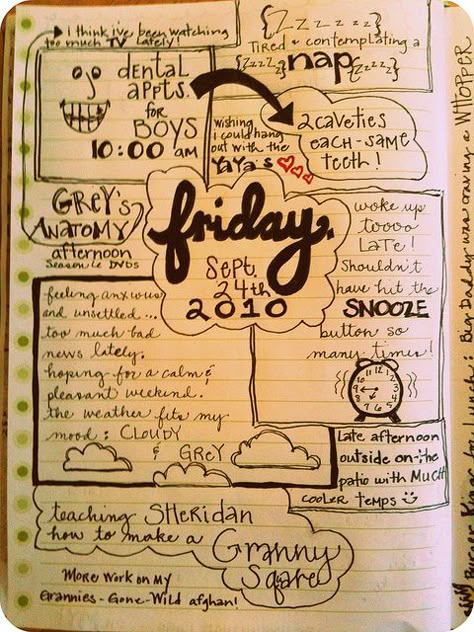 I think I've been watching
too much TV lately!
{Zzzzzzz}
Tired & contemplating a
{zzzz} nap {zzzz}
dental
appts.
for
BOYS
10:00 am
wishing
I could hang
out with the
YaYa's
2 caveties
each - same
teeth!
GREY'S
ANATOMY
afternoon
Season 6 DVDs
friday,
Sept.
24th
2010
woke up
toooo
LaTe!
Shouldn't
have hit the
SNOOZE
button so
many times!
feeling anxious
and unsettled...
too much bad
news lately.
hoping for a calm &
pleasant weekend.
the weather fits my
mood: CLOUDY
& GReY
Late afternoon
outside on-the
patio with Much
cooler temps
teaching SHeRIDAN
how to make a
Granny
Square
More work on my
Grannies-Gone-Wild afghan!
Burger King for Lunch. Big daddy was craving a WHOPPER